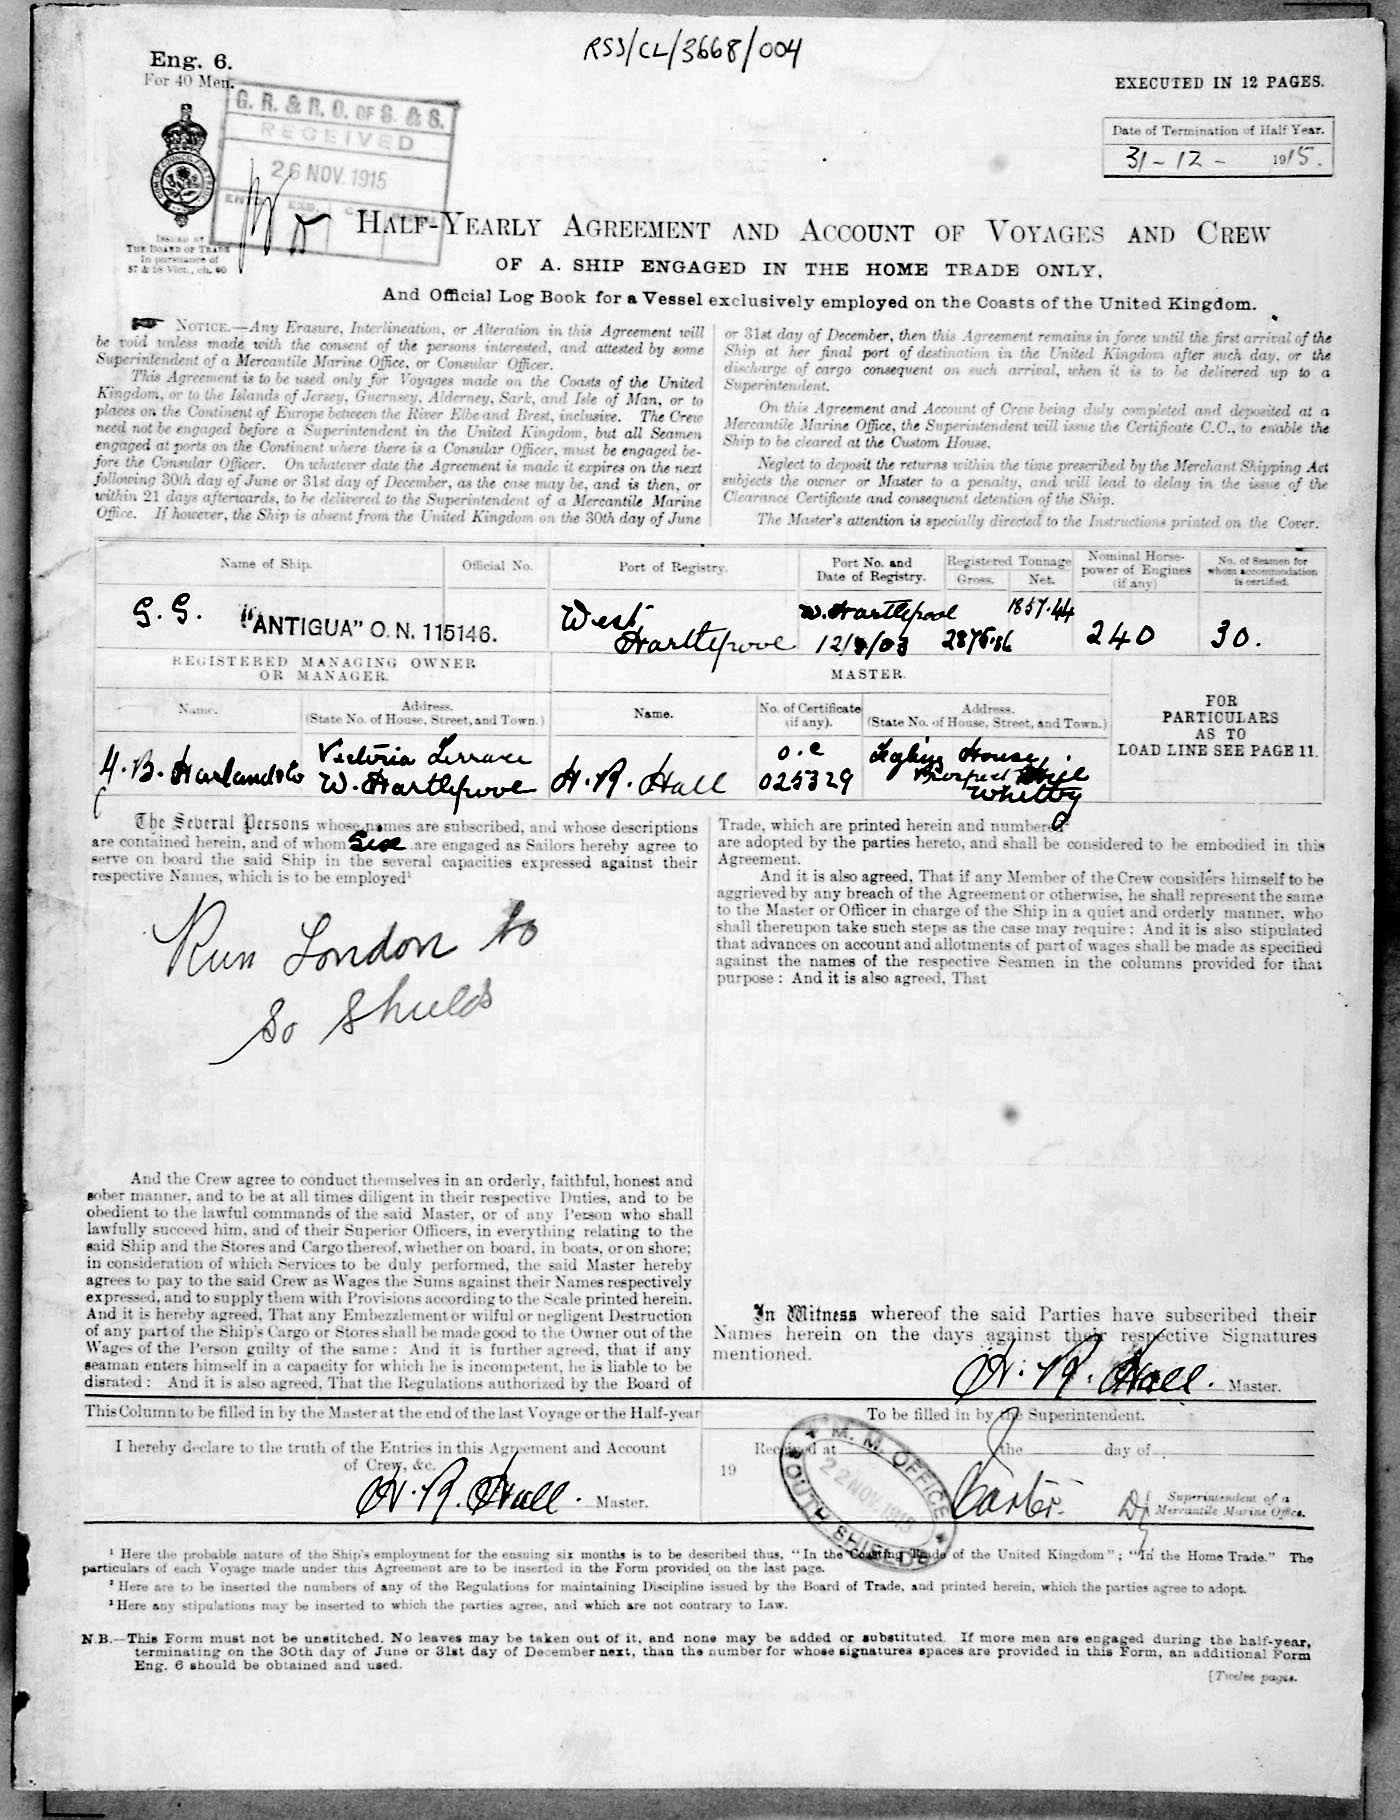 RSS/CL/3668/004
Eng. 6.
For 40 Men.
EXECUTED IN 12 PAGES.
G. R. & R. O. OF S. & S.
RECEIVED
26 NOV. 1915
Date of Termination of Half Year.
31-12- 1915.
ISSUED BY
THE BOARD OF TRADE
In pursuance of
57 & 58 Vict., ch. 60
HALF-YEARLY AGREEMENT AND ACCOUNT OF VOYAGES AND CREW
OF A. SHIP ENGAGED IN THE HOME TRADE ONLY,
And Official Log Book for a Vessel exclusively employed on the Coasts of the United Kingdom.
NOTICE.—Any Erasure, Interlineation, or Alteration in this Agreement will
be void unless made with the consent of the persons interested, and attested by some
Superintendent of a Mercantile Marine Office, or Consular Officer.
This Agreement is to be used only for Voyages made on the Coasts of the United
Kingdom, or to the Islands of Jersey, Guernsey, Alderney, Sark, and Isle of Man, or to
places on the Continent of Europe between the River Elbe and Brest, inclusive. The Crew
need not be engaged before a Superintendent in the United Kingdom, but all Seamen
engaged at ports on the Continent where there is a Consular Officer, must be engaged be-
fore the Consular Officer. On whatever date the Agreement is made it expires on the next
following 30th day of June or 31st day of December, as the case may be, and is then, or
within 21 days afterwards, to be delivered to the Superintendent of a Mercantile Marine
Office. If however, the Ship is absent from the United Kingdom on the 30th day of June
or 31st day of December, then this Agreement remains in force until the first arrival of the
Ship at her final port of destination in the United Kingdom after such day, or the
discharge of cargo consequent on such arrival, when it is to be delivered up to a
Superintendent.
On this Agreement and Account of Crew being duly completed and deposited at a
Mercantile Marine Office, the Superintendent will issue the Certificate C.C., to enable the
Ship to be cleared at the Custom House.
Neglect to deposit the returns within the time prescribed by the Merchant Shipping Act
subjects the owner or Master to a penalty, and will lead to delay in the issue of the
Clearance Certificate and consequent detention of the Ship.
The Master's attention is specially directed to the Instructions printed on the Cover.
Name of Ship. Official No. Port of Registry. Port No. and Date of Registry. Registered Tonnage Gross. Net. Nominal Horse-power of Engines (if any) No. of Seamen for whom accommodation is certified.
S.S. "ANTIGUA" O.N. 115146. West Hartlepool W. Hartlepool 1857.44 240 30.
REGISTERED MANAGING OWNER
OR MANAGER.
MASTER.
Name. Address. (State No. of House, Street, and Town.) Name. No. of Certificate (if any). Address. (State No. of House, Street, and Town.)
FOR
PARTICULARS
AS TO
LOAD LINE SEE PAGE 11.
Harland & Co Victoria Terrace W. Hartlepool H. R. Hall O.C 025329 House, Prospect Whitby
The Several Persons whose names are subscribed, and whose descriptions
are contained herein, and of whom Six are engaged as Sailors hereby agree to
serve on board the said Ship in the several capacities expressed against their
respective Names, which is to be employed¹
Run London to
So Shields
And the Crew agree to conduct themselves in an orderly, faithful, honest and
sober manner, and to be at all times diligent in their respective Duties, and to be
obedient to the lawful commands of the said Master, or of any Person who shall
lawfully succeed him, and of their Superior Officers, in everything relating to the
said Ship and the Stores and Cargo thereof, whether on board, in boats, or on shore;
in consideration of which Services to be duly performed, the said Master hereby
agrees to pay to the said Crew as Wages the Sums against their Names respectively
expressed, and to supply them with Provisions according to the Scale printed herein.
And it is hereby agreed, That any Embezzlement or wilful or negligent Destruction
of any part of the Ship's Cargo or Stores shall be made good to the Owner out of the
Wages of the Person guilty of the same: And it is further agreed, that if any
seaman enters himself in a capacity for which he is incompetent, he is liable to be
disrated: And it is also agreed, That the Regulations authorized by the Board of
Trade, which are printed herein and numbered
are adopted by the parties hereto, and shall be considered to be embodied in this
Agreement.
And it is also agreed, That if any Member of the Crew considers himself to be
aggrieved by any breach of the Agreement or otherwise, he shall represent the same
to the Master or Officer in charge of the Ship in a quiet and orderly manner, who
shall thereupon take such steps as the case may require: And it is also stipulated
that advances on account and allotments of part of wages shall be made as specified
against the names of the respective Seamen in the columns provided for that
purpose: And it is also agreed, That
In Witness whereof the said Parties have subscribed their
Names herein on the days against their respective Signatures
mentioned.
H. R. Hall. Master.
This Column to be filled in by the Master at the end of the last Voyage or the Half-year
I hereby declare to the truth of the Entries in this Agreement and Account
of Crew, &c.
H. R. Hall. Master.
To be filled in by the Superintendent.
Received at the day of
19
M. M. OFFICE
22 NOV. 1915
SOUTH SHIELDS
Superintendent of a
Mercantile Marine Office.
¹ Here the probable nature of the Ship's employment for the ensuing six months is to be described thus, "In the Coasting Trade of the United Kingdom"; "In the Home Trade." The
particulars of each Voyage made under this Agreement are to be inserted in the Form provided on the last page.
² Here are to be inserted the numbers of any of the Regulations for maintaining Discipline issued by the Board of Trade, and printed herein, which the parties agree to adopt.
³ Here any stipulations may be inserted to which the parties agree, and which are not contrary to Law.
N.B.—This Form must not be unstitched. No leaves may be taken out of it, and none may be added or substituted. If more men are engaged during the half-year,
terminating on the 30th day of June or 31st day of December next, than the number for whose signatures spaces are provided in this Form, an additional Form
Eng. 6 should be obtained and used.
[Twelve pages.